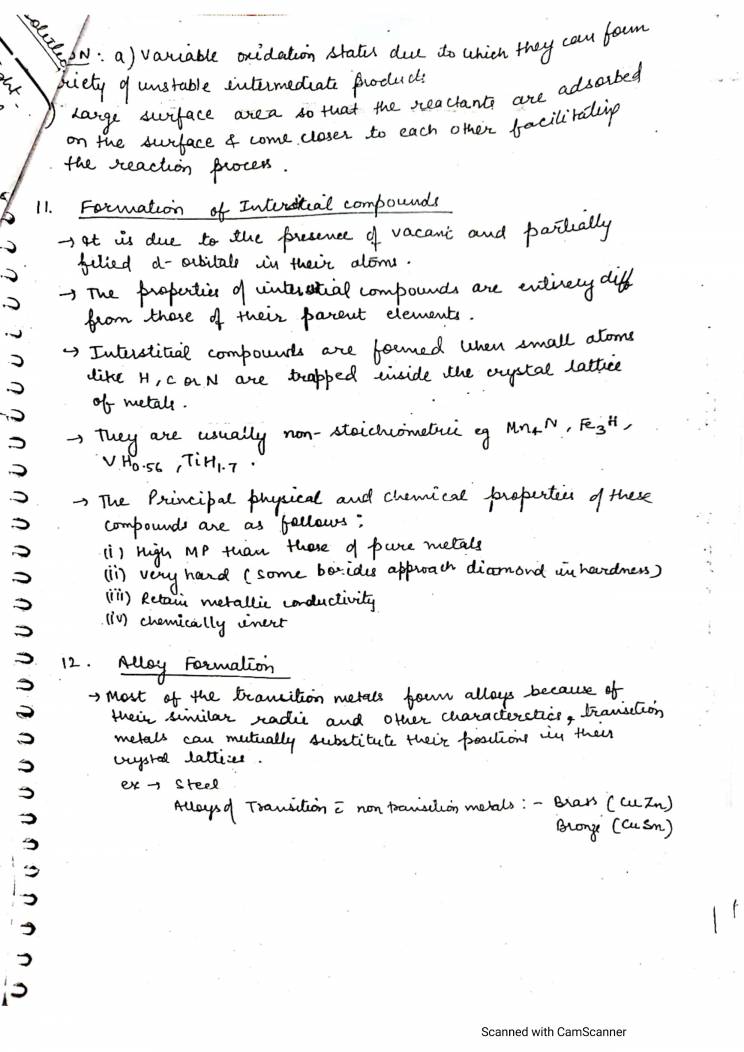 ON: a) Variable oxidation states due to which they can form
riety of unstable intermediate products
) Large surface area so that the reactants are adsorbed
on the surface & come closer to each other facilitating
the reaction process.
11. Formation of Interstitial compounds
→ It is due to the presence of vacant and partially
filled d- orbitals in their atoms.
→ The properties of interstitial compounds are entirely diff
from those of their parent elements.
→ Interstitial compounds are formed when small atoms
like H, C or N are trapped inside the crystal lattice
of metals.
→ They are usually non-stoichiometric eg Mn4N, Fe3H,
VH0.56, TiH1.7.
→ The Principal physical and chemical properties of these
compounds are as follows:
(i) High MP than those of pure metals
(ii) very hard (some borides approach diamond in hardness)
(iii) Retain metallic conductivity
(iv) chemically inert
12. Alloy Formation
→ Most of the transition metals form alloys because of
their similar radii and other characterstics, transition
metals can mutually substitute their positions in their
crystal lattices.
ex → Steel
Alloys of Transition c̄ non transition metals :- Brass (CuZn)
Bronze (CuSn)
Scanned with CamScanner